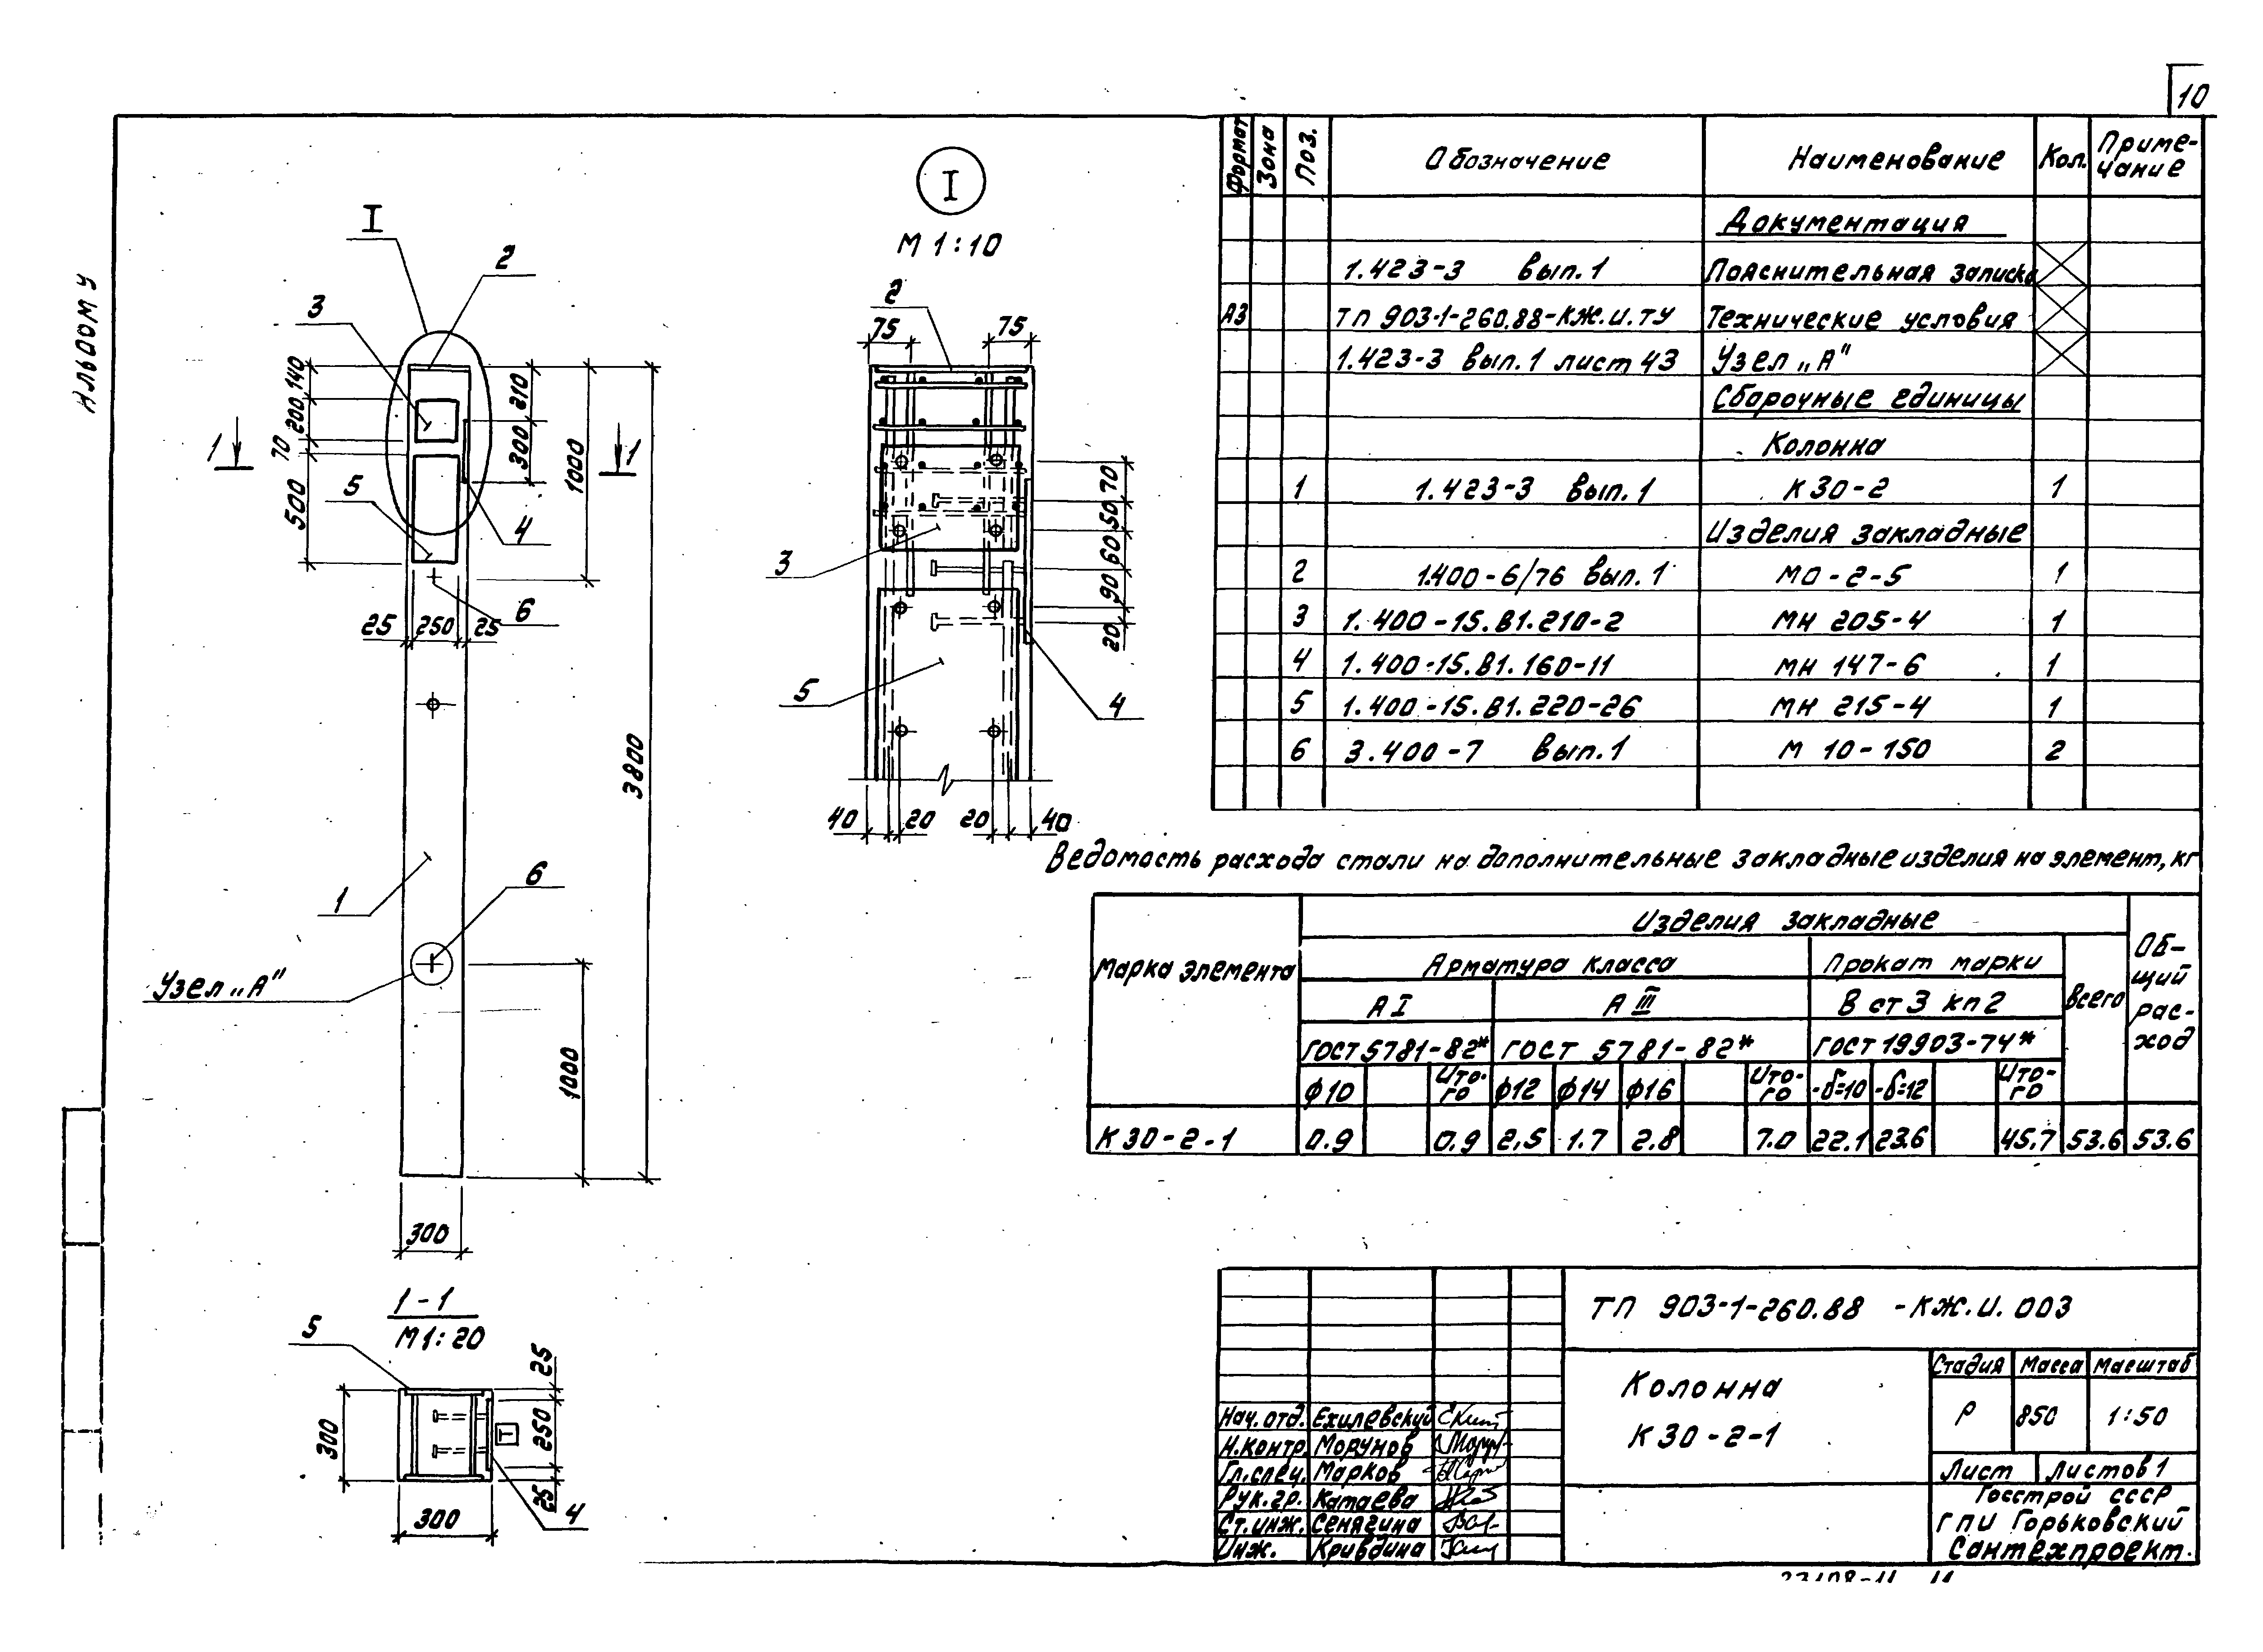 10
Альбом У
I
2
3
140
200
70
500
210
300
1000
1
1
5
4
6
25
250
25
3800
1
6
Узел „А"
1000
300
1-1
М1:20
5
300
25
250
25
Т
4
300
I
М 1:10
2
75
75
70
50
60
90
20
3
5
4
40
20
20
40
Формат Зона Поз. Обозначение Наименование Кол. Приме-
чание
Документация
1.423-3 вып.1 Пояснительная записка
А3 ТП 903-1-260.88-КЖ.И.ТУ Технические условия
1.423-3 вып.1 лист 43 Узел „А"
Сборочные единицы
Колонна
1 1.423-3 вып.1 К 30-2 1
Изделия закладные
2 1.400-6/76 вып.1 МО-2-5 1
3 1.400-15.В1.210-2 МН 205-4 1
4 1.400-15.В1.160-11 МН 147-6 1
5 1.400-15.В1.220-26 МН 215-4 1
6 3.400-7 вып.1 М 10-150 2
Ведомость расхода стали на дополнительные закладные изделия на элемент, кг
Марка элемента
Изделия закладные
Об-
щий
рас-
ход
Арматура класса Прокат марки
Всего
А I А III В ст 3 кп 2
ГОСТ 5781-82* ГОСТ 5781-82* ГОСТ 19903-74*
ф10 Ито-
го ф12 ф14 ф16 Ито-
го -δ=10 -δ=12 Ито-
го
К 30-2-1 0.9 0.9 2,5 1.7 2.8 7.0 22.1 23.6 45.7 53.6 53.6
ТП 903-1-260.88 -КЖ.И.003
Колонна
К 30-2-1
Стадия Масса Масштаб
Р 850 1:50
Лист Листов 1
Госстрой СССР
ГПИ Горьковский
Сантехпроект.
Нач.отд. Ехилевский
Н.контр. Морунов
Гл.спец. Марков
Рук.гр. Катаева
Ст.инж. Сенягина
Инж. Кривдина